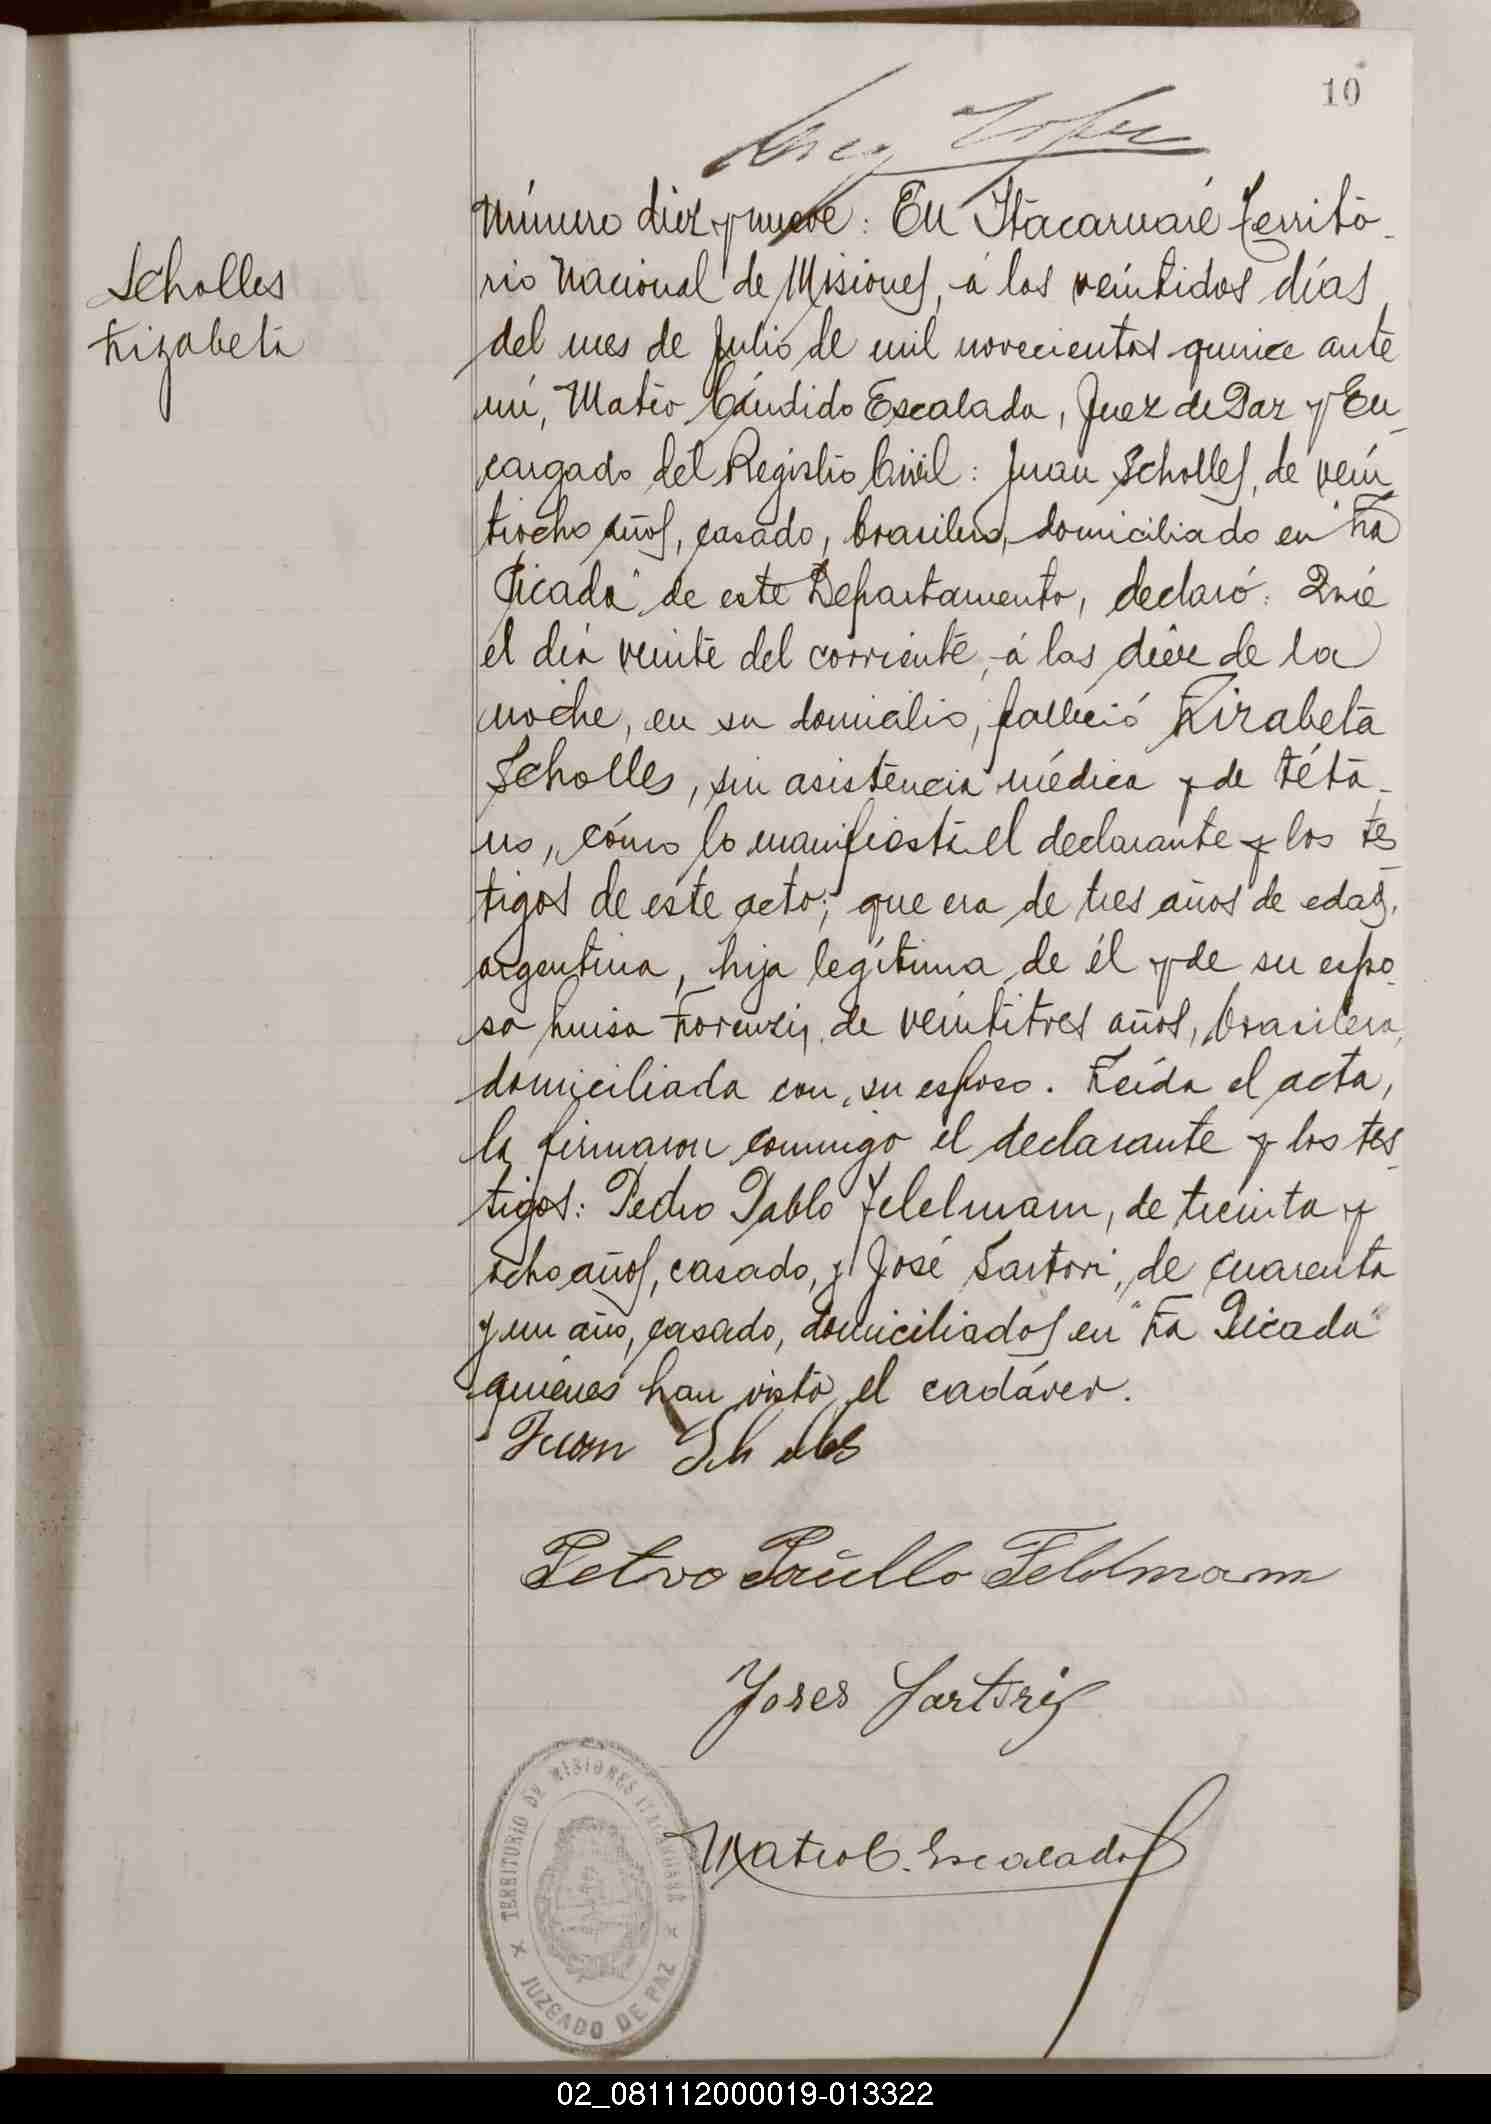 10
Scholles
Lizabeta
Número diez y nueve: En Itacaruaré Territo-
rio Nacional de Misiones, á los veintidos días
del mes de Julio de mil novecientos quince ante
mí, Mateo Cándido Escalada, Juez de Paz y En-
cargado del Registro Civil: Juan Scholles, de vein
tiocho años, casado, brasilero, domiciliado en "La
Picada" de este Departamento, declaró: Que
el día veinte del corriente, á las diez de la
noche, en su domicilio, falleció Lizabeta
Scholles, sin asistencia médica y de téta-
no, cómo lo manifiesta el declarante y los tes
tigos de este acto; que era de tres años de edad,
argentina, hija legítima de él y de su espo-
sa Luisa Lorenzi, de veintitres años, brasilera,
domiciliada con su esposo. Leída el acta,
la firmaron conmigo el declarante y los tes-
tigos: Pedro Pablo Feldmann, de treinta y
ocho años, casado, y José Sartori, de cuarenta
y un año, casado, domiciliados en "La Picada"
quiénes han visto el cadáver.
Juan
Petro Paullo Feldmann
Joses Sartori
Mateo C. Escalada
TERRITORIO DE MISIONES ITACARUARÉ
JUZGADO DE PAZ
02_081112000019-013322